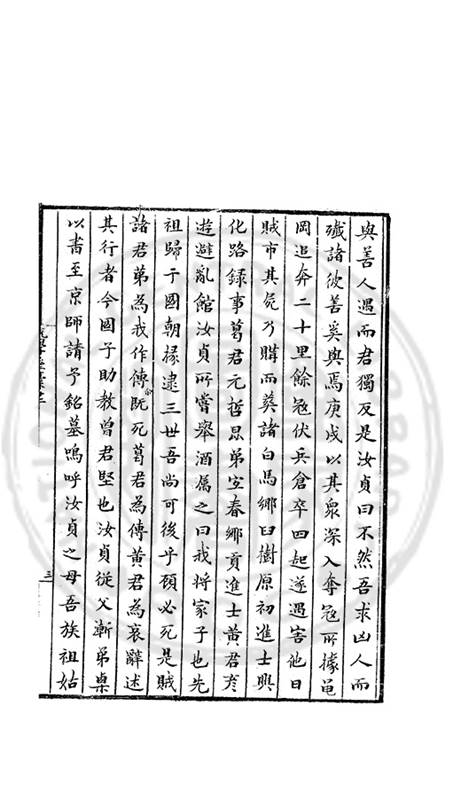 與善人遇而君獨反是汝貞曰不然吾求凶人而
殲諸彼善奚與焉庚戌以其衆深入奪冦所據黽
岡追奔二十里餘冦伏兵倉卒四起遂遇害他日
賊市其屍乃購而葬諸白馬鄉臼樹原初進士興
化路録事葛君元哲昆弟寔春鄉貢進士黄君彥
遊避亂館汝貞所嘗舉酒屬之曰我將家子也先
祖歸于國朝掾逮三世吾尚可後乎頋必死是賊
諸君弟為我作傳既死葛君為傳黄君為哀辭述
其行者今國子助教曾君堅也汝貞從父漸弟㮚
以書至京師請予銘墓嗚呼汝貞之母吾族祖姑
三